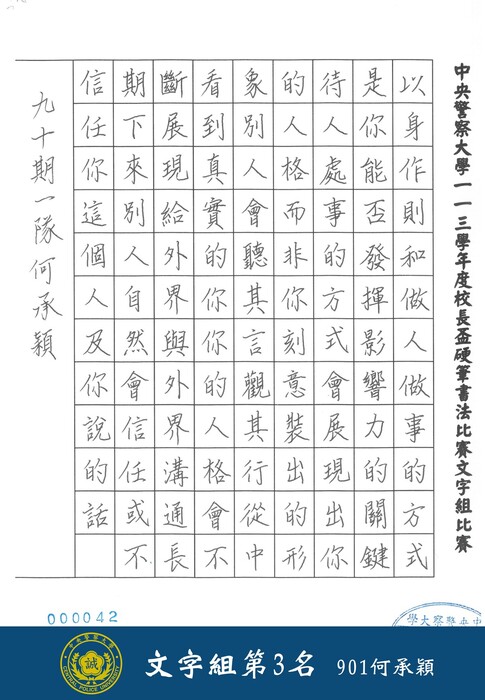 中央警察大學一一三學年度校長盃硬筆書法比賽文字組比賽
以身作則和做人做事的方式
是你能否發揮影響力的關鍵
待人處事的方式會展現出你
的人格而非你刻意裝出的形
象別人會聽其言觀其行從中
看到真實的你你的人格會不
斷展現給外界與外界溝通長
期下來別人自然會信任或不
信任你這個人及你說的話
九十期一隊何承穎
000042
中央警察大學
誠
CENTRAL POLICE UNIVERSITY
文字組第3名 901何承穎